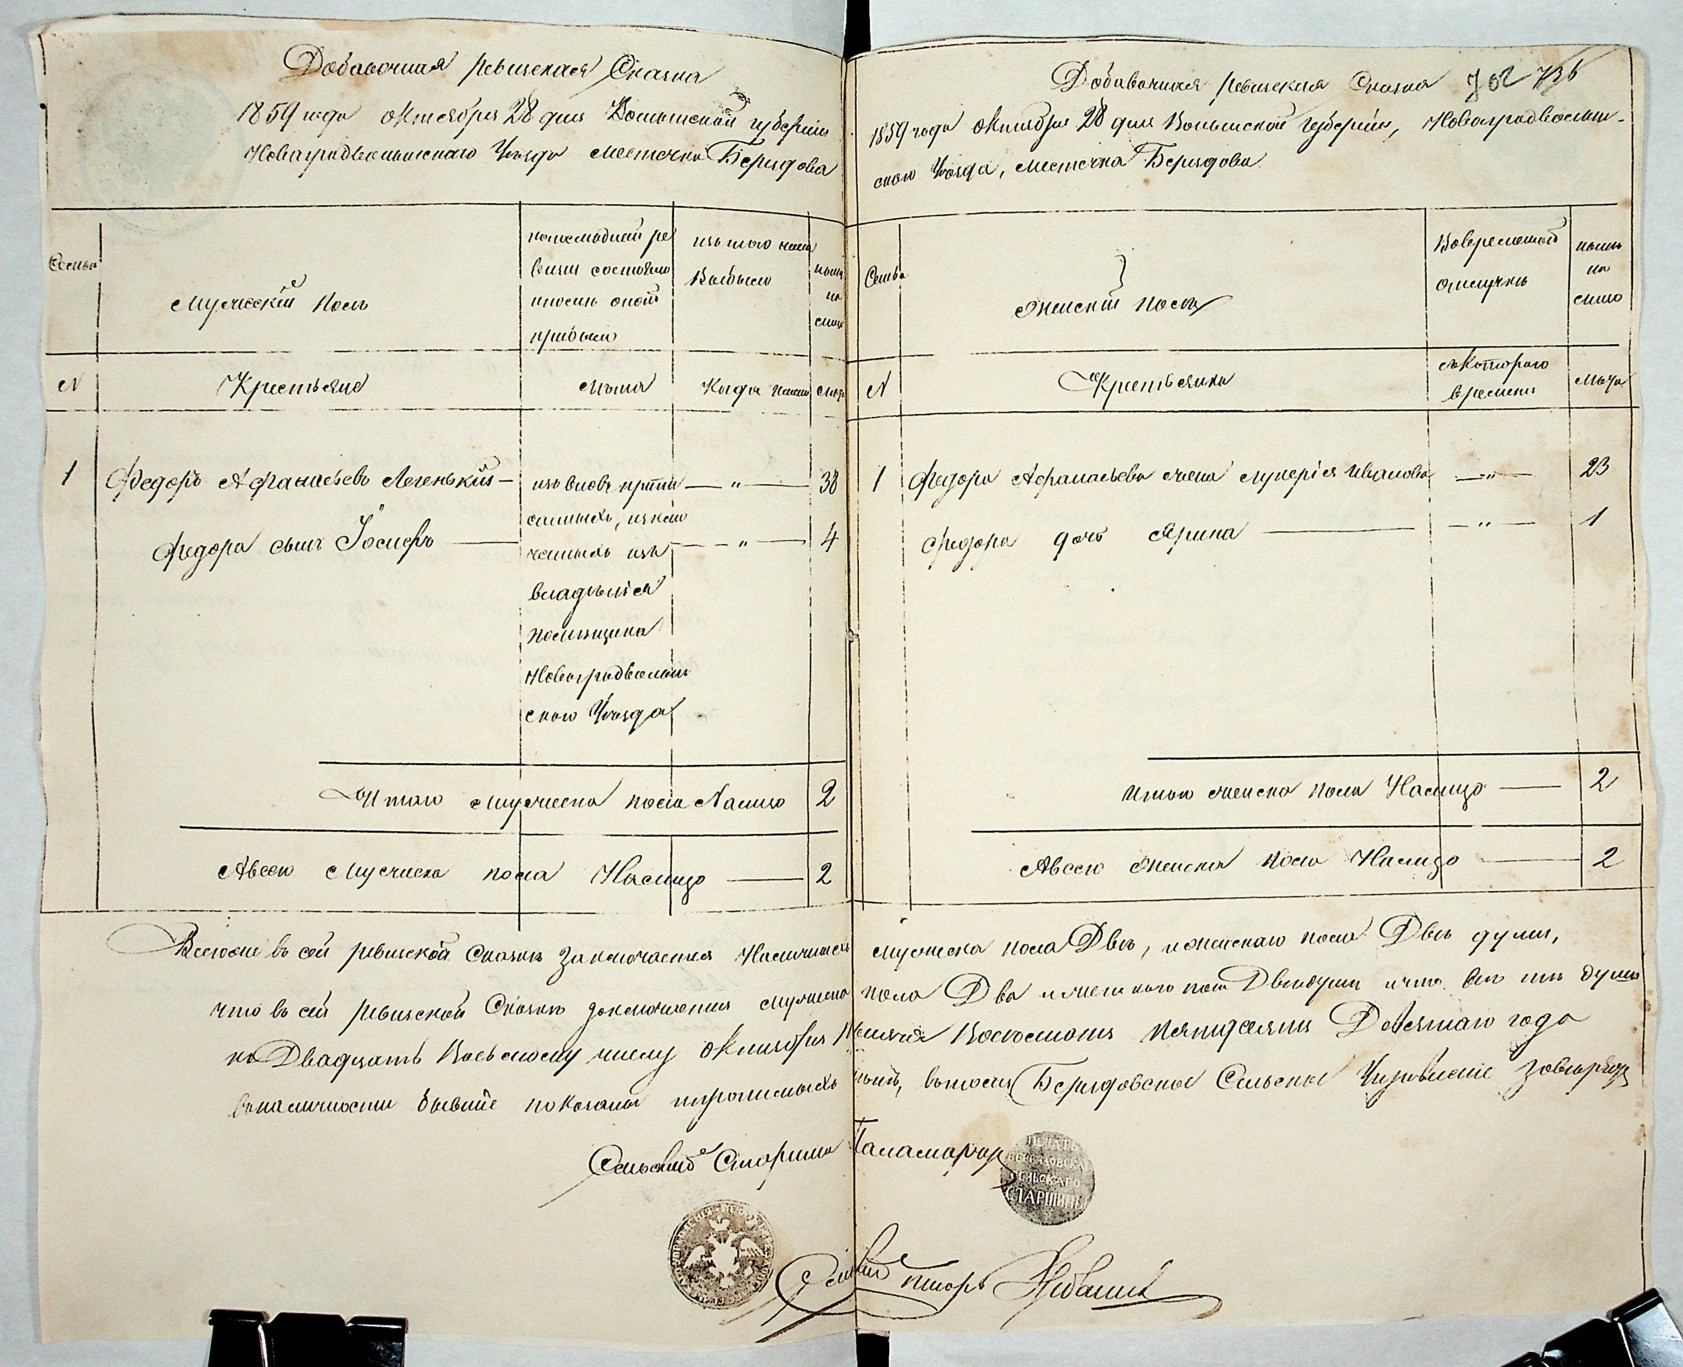 Добавочная ревизская Сказка
1859 года октября 28 дня Волынской губернии
Новоградволынского Уѣзда местечка Берездова
Семьи
мужескій полъ
по последней ре
визіи состояло
и после оной
прибыло
изъ того числа
Выбыло
ныне
на
лицо
N
Крестьяне
лѣта
Когда имянно
лѣта
1 Федоръ Афанасьевъ Легенькій — изъ вновь припи — „ — 38
санныхъ, изклю
Федора сынъ Іосифъ — ченныхъ изъ — „ — 4
владѣнія
помѣщика
Новоградволын
ского Уѣзда
Итого мужеска пола Налицо 2
А всего мужеска пола Налицо — 2
Добавочная ревизская Сказка 702 736
1859 года октября 28 дня Волынской губерніи, Новоградволын-
ского Уѣзда, местечка Берездова
Семьи
Женскій полъ
Во временной
отлучкѣ
ныне
на
лицо
N
Крестьянки
съ котораго
времени
лѣта
1 Федора Афанасьева жена Лукерія Иванова — „ — 23
Федора дочь Ярина — „ — 1
Итого женска пола Налицо — 2
А всего женска пола Налицо — 2
въ сей ревизской Сказкѣ заключается Наличныхъ мужеска пола Двѣ, и женскаго пола Двѣ души,
что въ сей ревизской Сказкѣ заключается мужеска пола Два и женского пола Две души и что всѣ тѣ души
по Двадцать Восьмому числу октября Месяца пятидесятъ Девятаго года
въ наличности бывшіе показаны Берездовское Сельское Управленіе
Сельскій Старшина Паламарчук
ПЕЧАТЬ
БЕРЕЗДОВСКА
СЕЛЬСКАГО
СТАРШИНЫ
Сельскій писарь